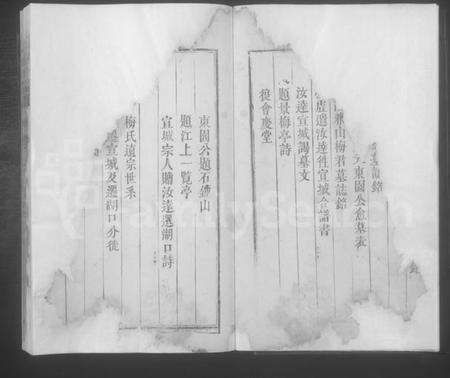 銘
東園公愈墓表
山梅君墓誌銘
盧遺汝達徃宣城會譜書
汝達宣城謁墓文
題景梅亭詩
從會慶堂
東園公題石佛山
題江上一覽亭
宣城宗人贈汝達還湖口詩
梅氏遠宗世系
宣城及遷湖口分徙
FamilySearch